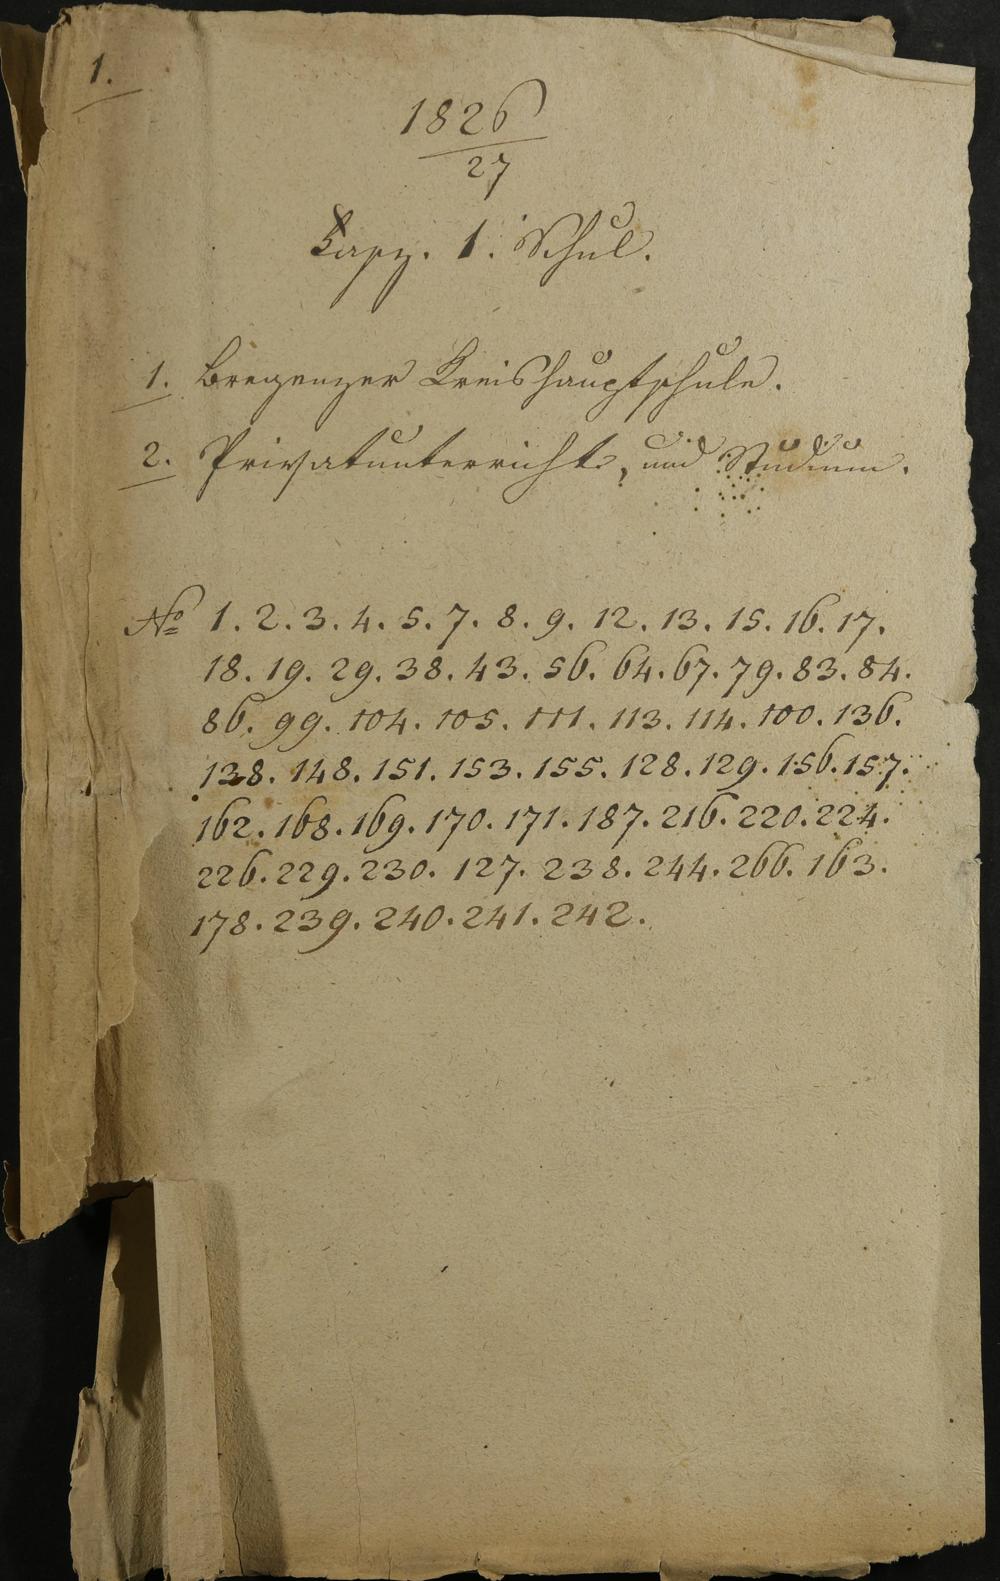 1.
1826
27
Fasz. 1. Schul.
1. Bregenzer Kreishauptschule.
2. Privatunterricht, und Studium.
No 1. 2. 3. 4. 5. 7. 8. 9. 12. 13. 15. 16. 17.
18. 19. 29. 38. 43. 56. 64. 67. 79. 83. 84.
86. 99. 104. 105. 111. 113. 114. 100. 136.
138. 148. 151. 153. 155. 128. 129. 156. 157.
162. 168. 169. 170. 171. 187. 216. 220. 224.
226. 229. 230. 127. 238. 244. 266. 163.
178. 239. 240. 241. 242.